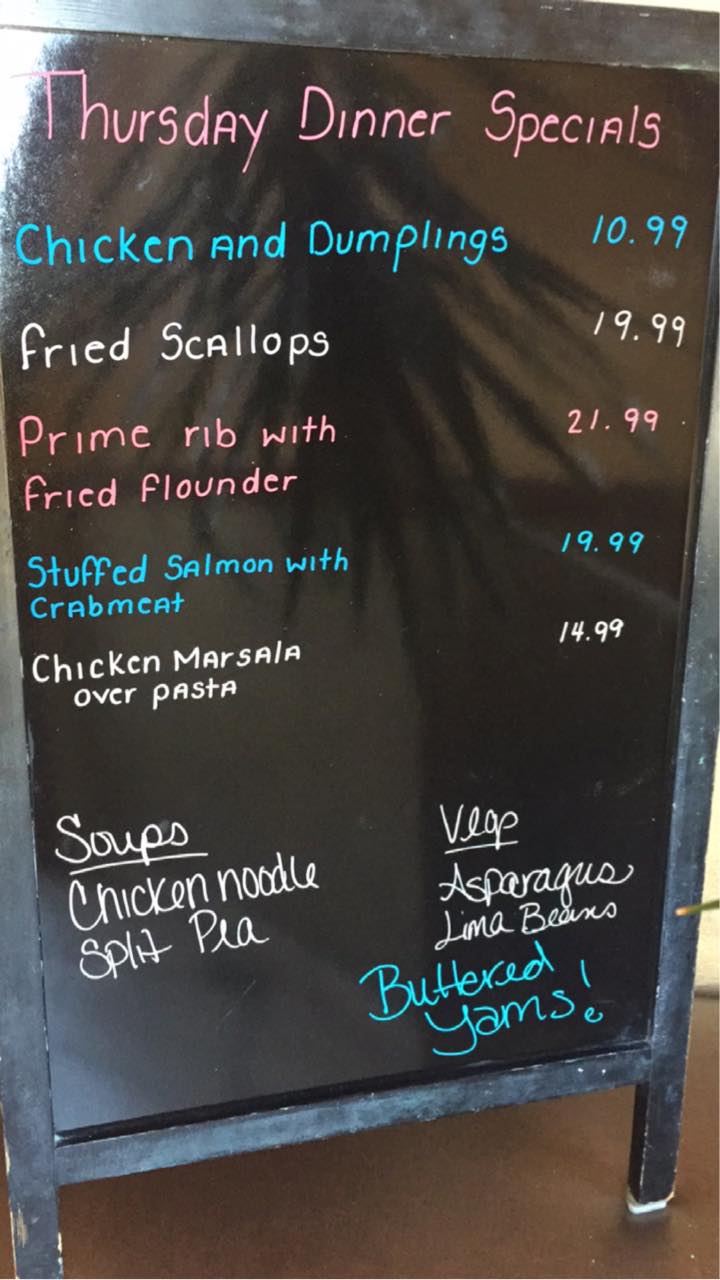 Thursday Dinner Specials
Chicken and Dumplings 10.99
Fried Scallops 19.99
Prime rib with 21.99
fried flounder
Stuffed Salmon with 19.99
Crabmeat
Chicken Marsala 14.99
over pasta
Soups
Chicken noodle
Split Pea
Vegs
Asparagus
Lima Beans
Buttered
Yams!